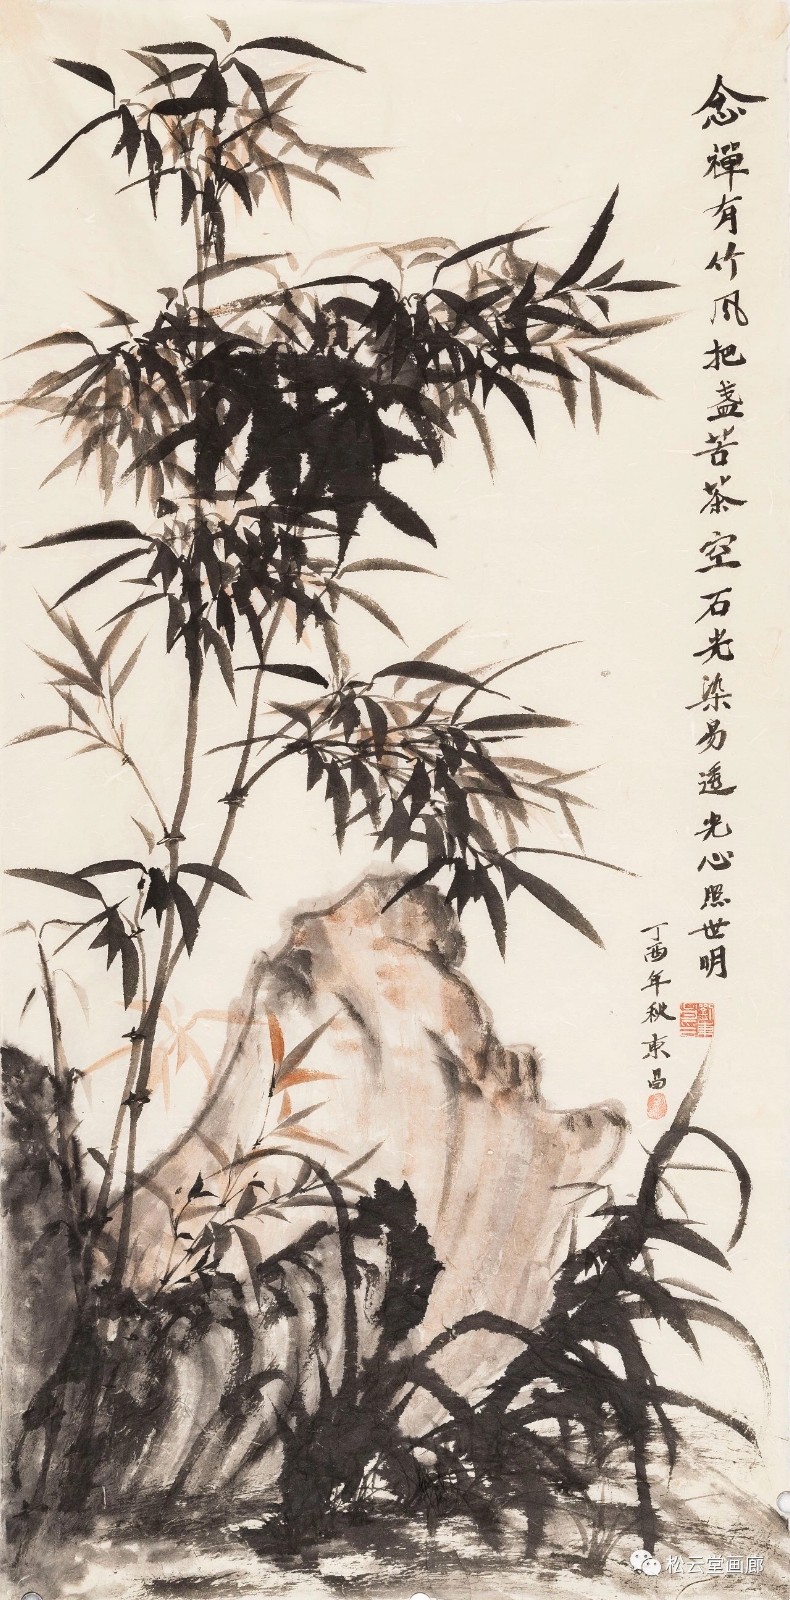 念禪有竹风把盏苦茶空石光染易透光心照世明
丁酉年秋東昌
松云堂画廊